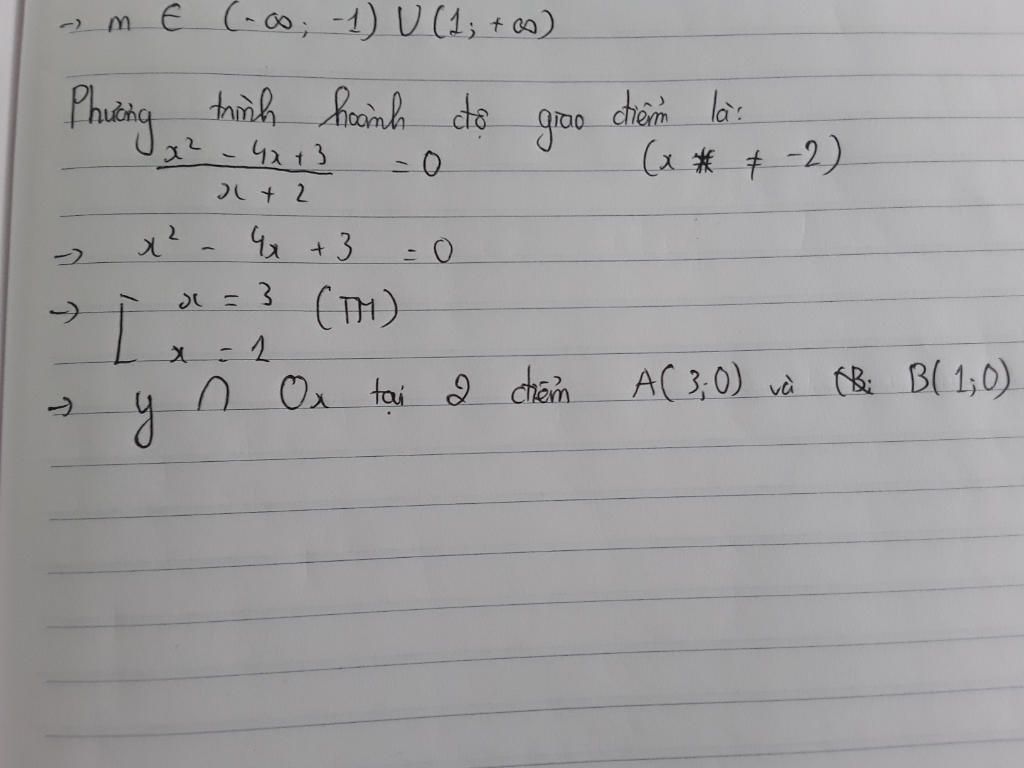 → m ∈ (-∞; -1) ∪ (1; +∞)
Phương trình hoành độ giao điểm là:
x² - 4x + 3 / x + 2 = 0 (x ≠ -2)
→ x² - 4x + 3 = 0
→ [ x = 3 (TM)
x = 1
→ y ∩ Ox tại 2 điểm A(3;0) và B(1;0)